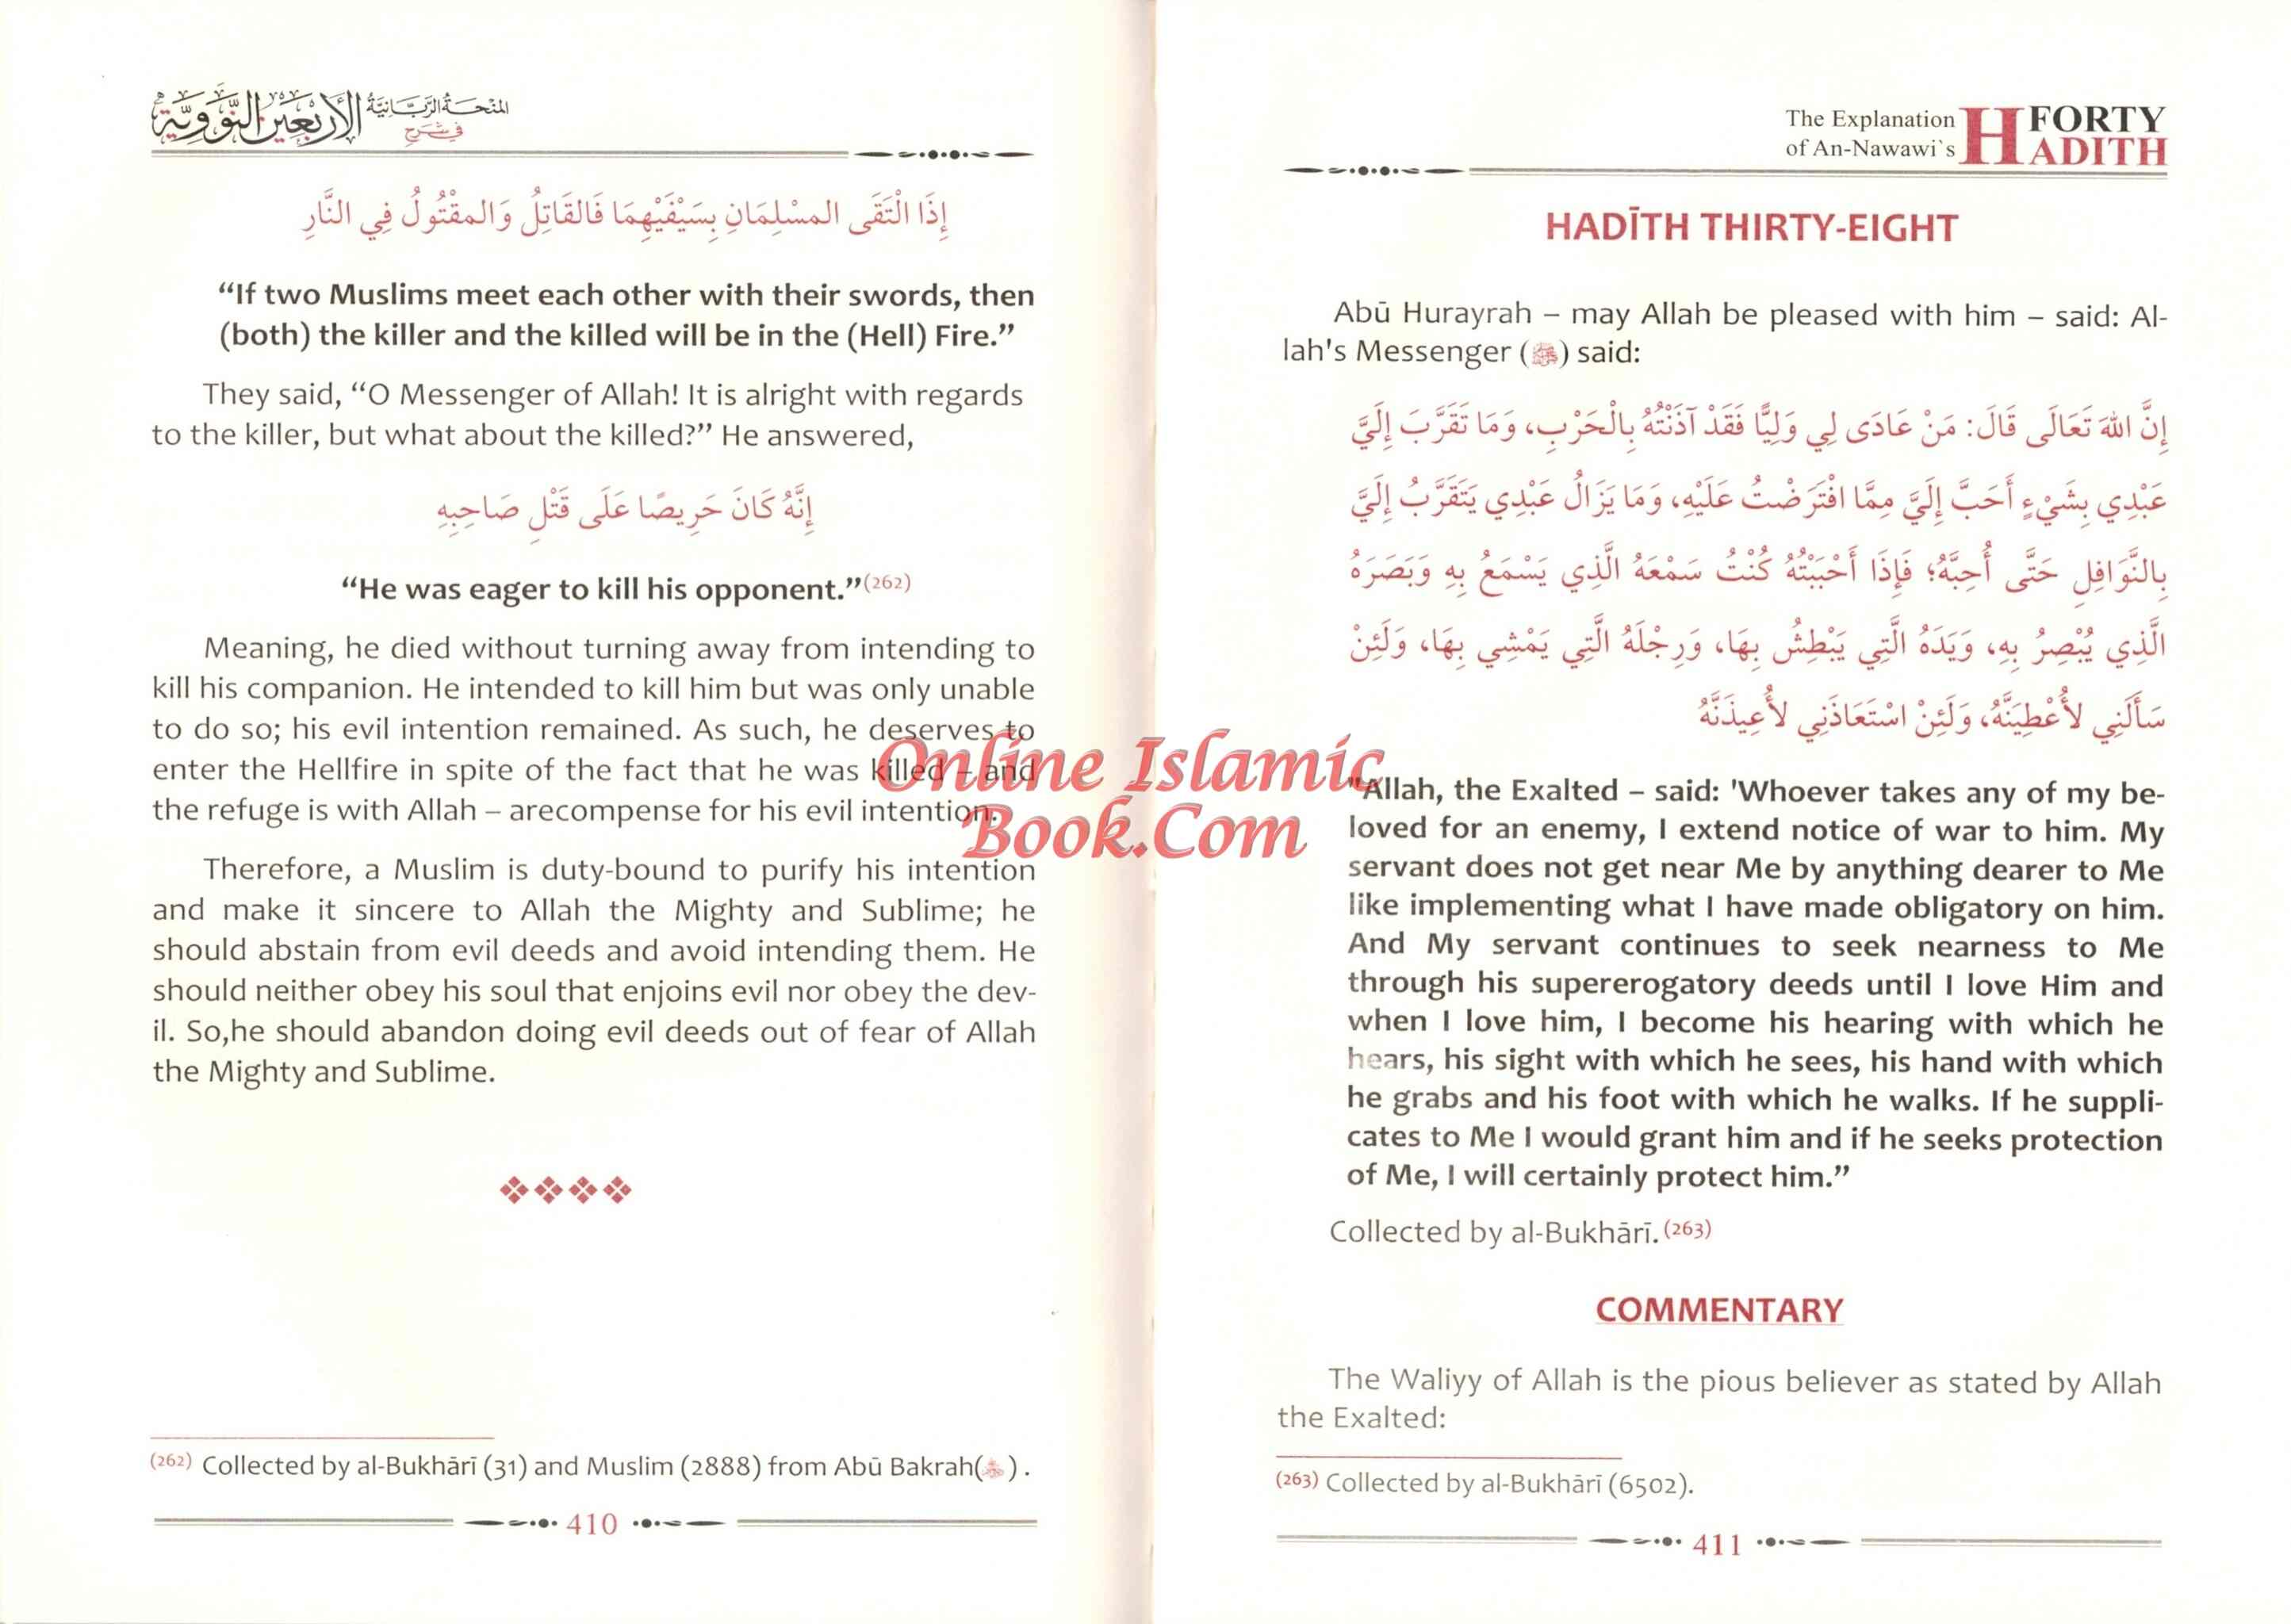 المنحة الربانية
في شرح
الأربعين النووية
إِذَا الْتَقَى المسْلِمَانِ بِسَيْفَيْهِمَا فَالقَاتِلُ وَالمقْتُولُ فِي النَّارِ
“If two Muslims meet each other with their swords, then
(both) the killer and the killed will be in the (Hell) Fire.”
They said, “O Messenger of Allah! It is alright with regards
to the killer, but what about the killed?” He answered,
إِنَّهُ كَانَ حَرِيصًا عَلَى قَتْلِ صَاحِبِهِ
“He was eager to kill his opponent.”(262)
Meaning, he died without turning away from intending to
kill his companion. He intended to kill him but was only unable
to do so; his evil intention remained. As such, he deserves to
enter the Hellfire in spite of the fact that he was killed – and
the refuge is with Allah – arecompense for his evil intention.
Therefore, a Muslim is duty-bound to purify his intention
and make it sincere to Allah the Mighty and Sublime; he
should abstain from evil deeds and avoid intending them. He
should neither obey his soul that enjoins evil nor obey the dev-
il. So,he should abandon doing evil deeds out of fear of Allah
the Mighty and Sublime.
(262) Collected by al-Bukhārī (31) and Muslim (2888) from Abū Bakrah( ) .
410
The Explanation
of An-Nawawi`s
FORTY
HADITH
HADĪTH THIRTY-EIGHT
Abū Hurayrah – may Allah be pleased with him – said: Al-
lah's Messenger (ﷺ) said:
إِنَّ اللهَ تَعَالَى قَالَ: مَنْ عَادَى لِي وَلِيًّا فَقَدْ آذَنْتُهُ بِالْحَرْبِ، وَمَا تَقَرَّبَ إِلَيَّ
عَبْدِي بِشَيْءٍ أَحَبَّ إِلَيَّ مِمَّا افْتَرَضْتُ عَلَيْهِ، وَمَا يَزَالُ عَبْدِي يَتَقَرَّبُ إِلَيَّ
بِالنَّوَافِلِ حَتَّى أُحِبَّهُ؛ فَإِذَا أَحْبَبْتُهُ كُنْتُ سَمْعَهُ الَّذِي يَسْمَعُ بِهِ وَبَصَرَهُ
الَّذِي يُبْصِرُ بِهِ، وَيَدَهُ الَّتِي يَبْطِشُ بِهَا، وَرِجْلَهُ الَّتِي يَمْشِي بِهَا، وَلَئِنْ
سَأَلَنِي لأُعْطِيَنَّهُ، وَلَئِنْ اسْتَعَاذَنِي لأُعِيذَنَّهُ
"Allah, the Exalted – said: 'Whoever takes any of my be-
loved for an enemy, I extend notice of war to him. My
servant does not get near Me by anything dearer to Me
like implementing what I have made obligatory on him.
And My servant continues to seek nearness to Me
through his supererogatory deeds until I love Him and
when I love him, I become his hearing with which he
hears, his sight with which he sees, his hand with which
he grabs and his foot with which he walks. If he suppli-
cates to Me I would grant him and if he seeks protection
of Me, I will certainly protect him.”
Collected by al-Bukhārī.(263)
COMMENTARY
The Waliyy of Allah is the pious believer as stated by Allah
the Exalted:
(263) Collected by al-Bukhārī (6502).
411
Online Islamic
Book.Com